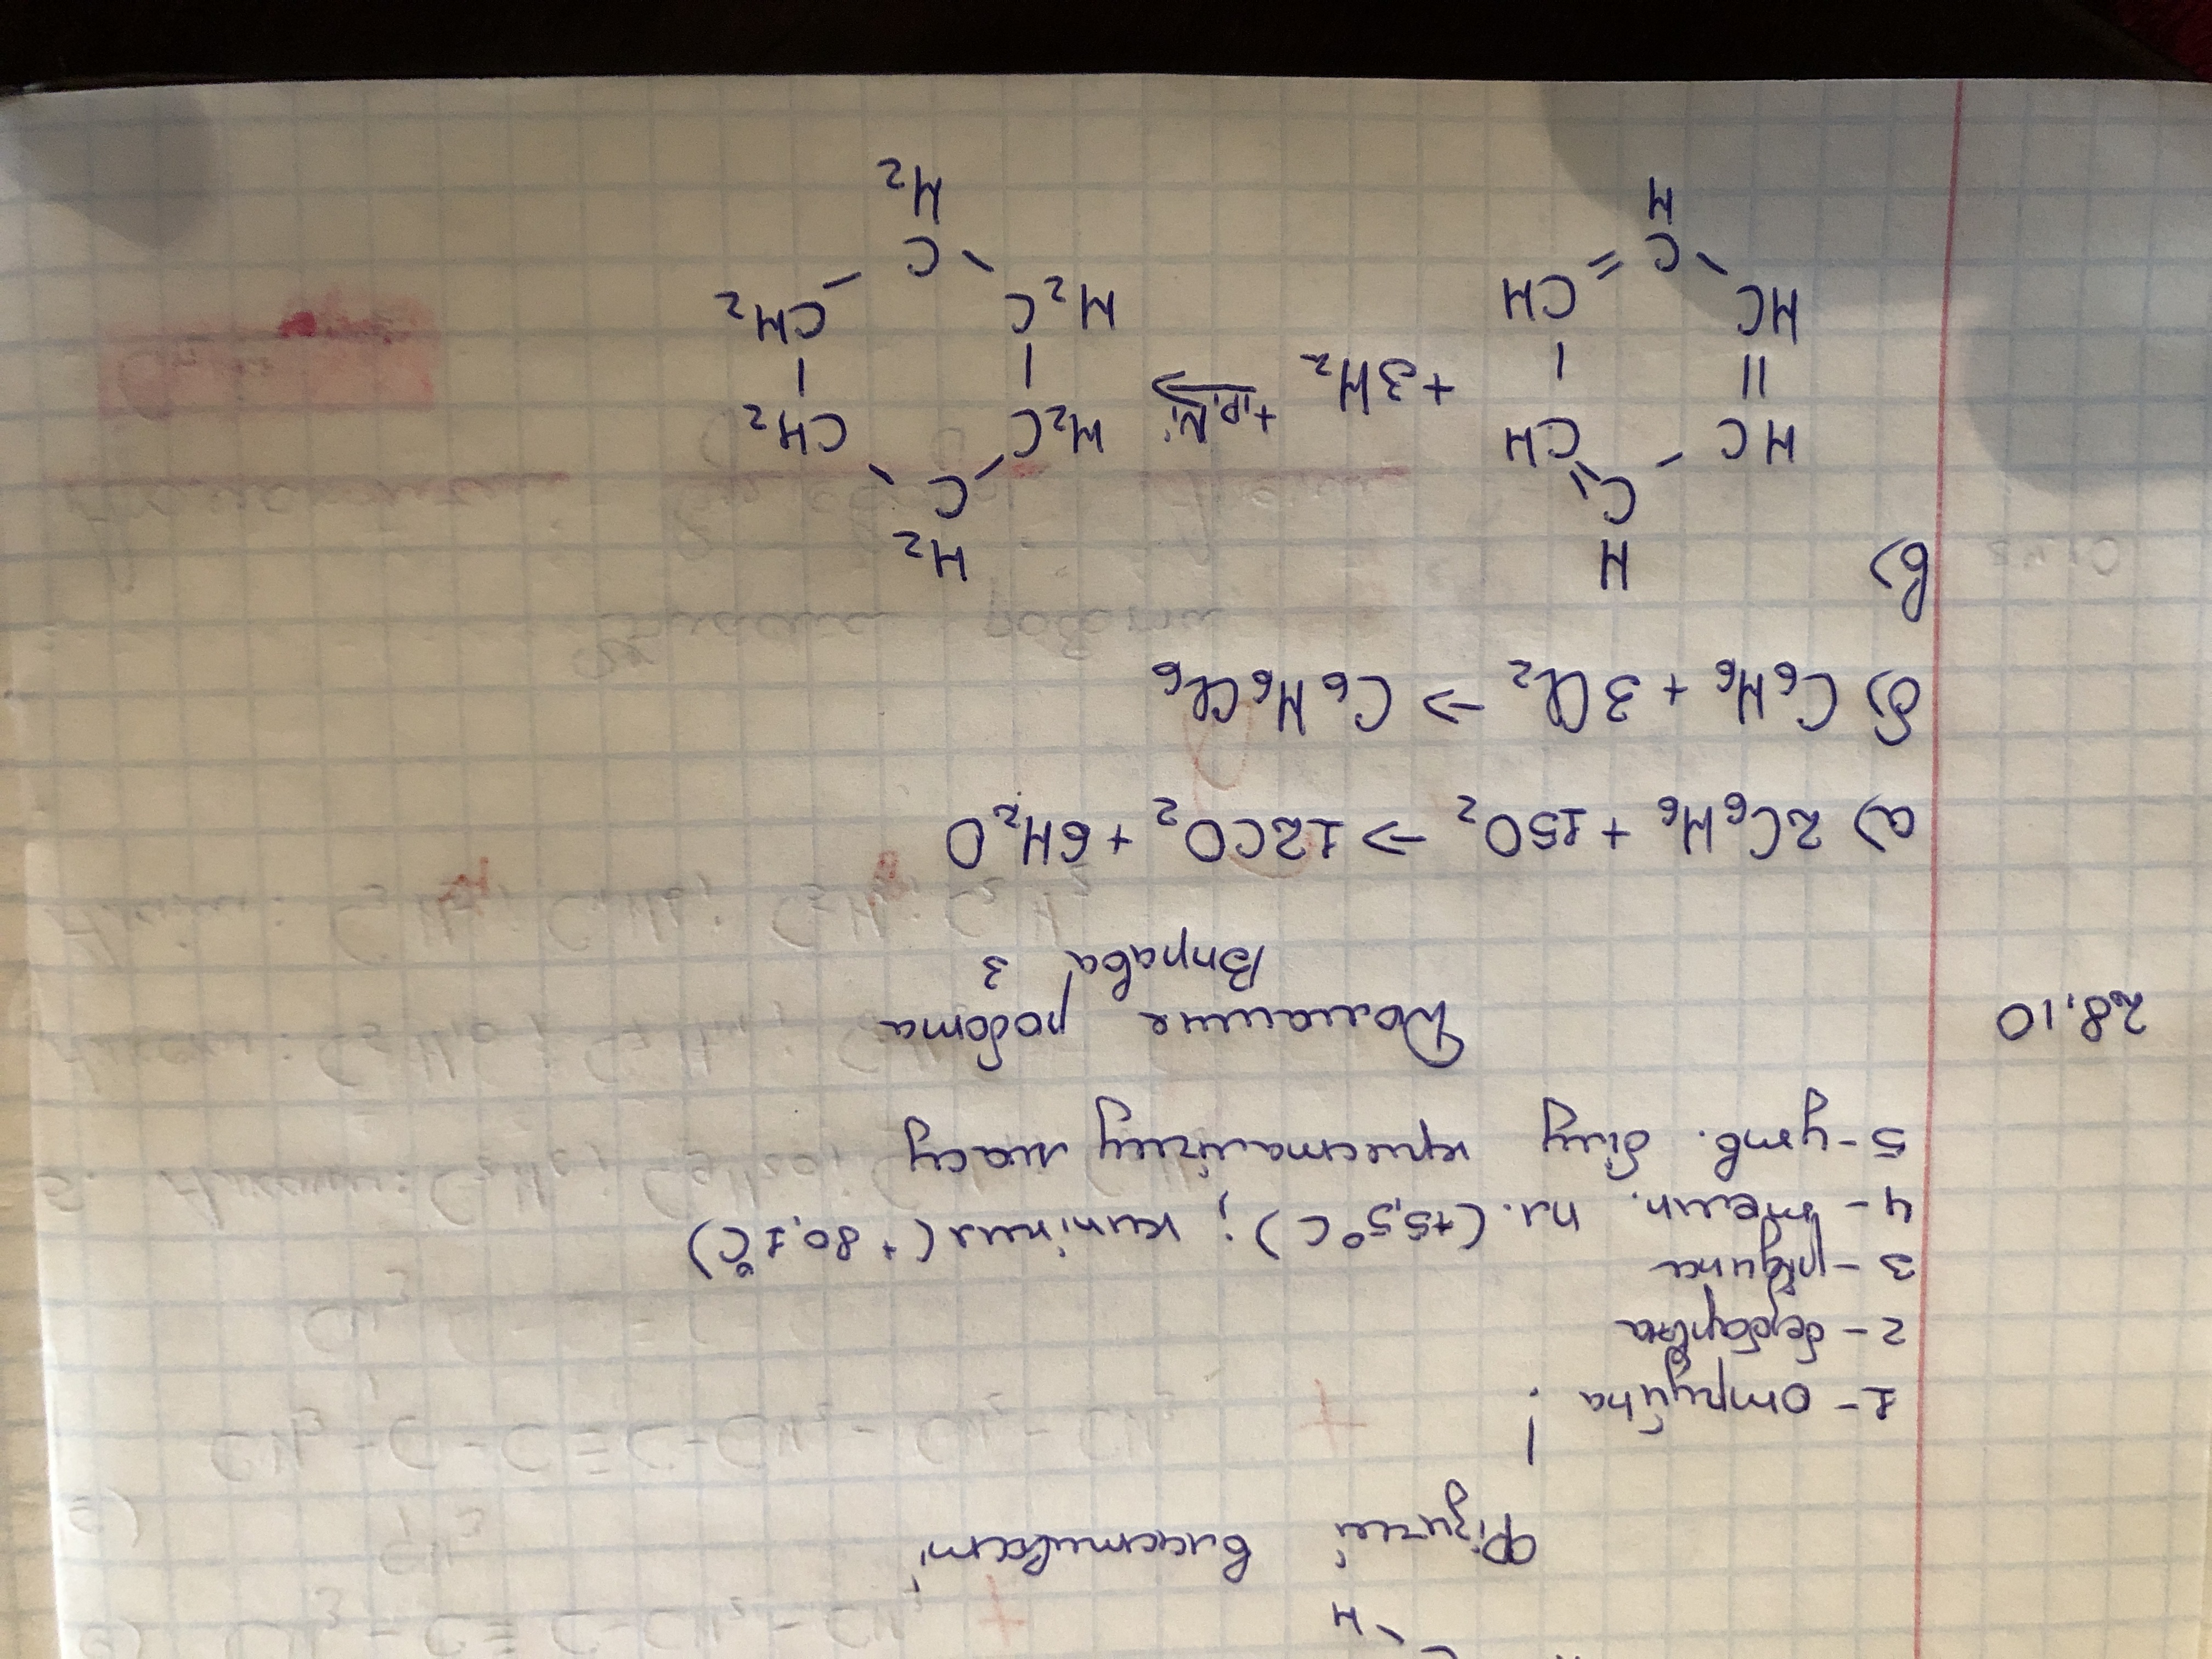 Фізичні властивості
1 - отруйна
2 - безбарвна
3 - рідина
4 - темп. пл. (+5,5°C); кипіння (+80,1°C)
5 - утв. білу кристалічну масу
28.10
Домашня робота
Вправа 3
а) 2C₆H₆ + 15O₂ → 12CO₂ + 6H₂O
б) C₆H₆ + 3Cl₂ → C₆H₆Cl₆
в)
H H₂
C C
HC CH H₂C CH₂
+3H₂ t,p,Ni →
HC CH H₂C CH₂
C C
H H₂